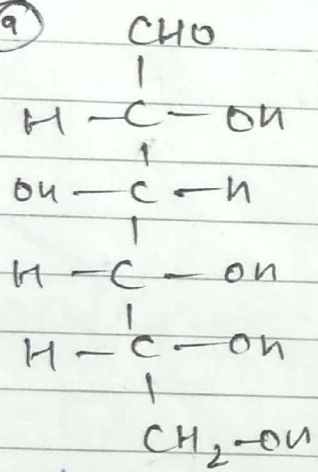 9
CHO
H - C - OH
OH - C - H
H - C - OH
H - C - OH
CH₂-OH